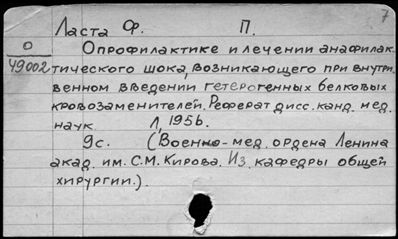 7
Ласта Ф. П.
О
49002
О профилактике и лечении анафилак-
тического шока, возникающего при внутри-
венном введении гетерогенных белковых
кровозаменителей. Реферат дисс. канд. мед.
наук Л, 1956.
9с. (Военно-мед. ордена Ленина
акад. им. С.М. Кирова. Из кафедры общей
хирургии.).